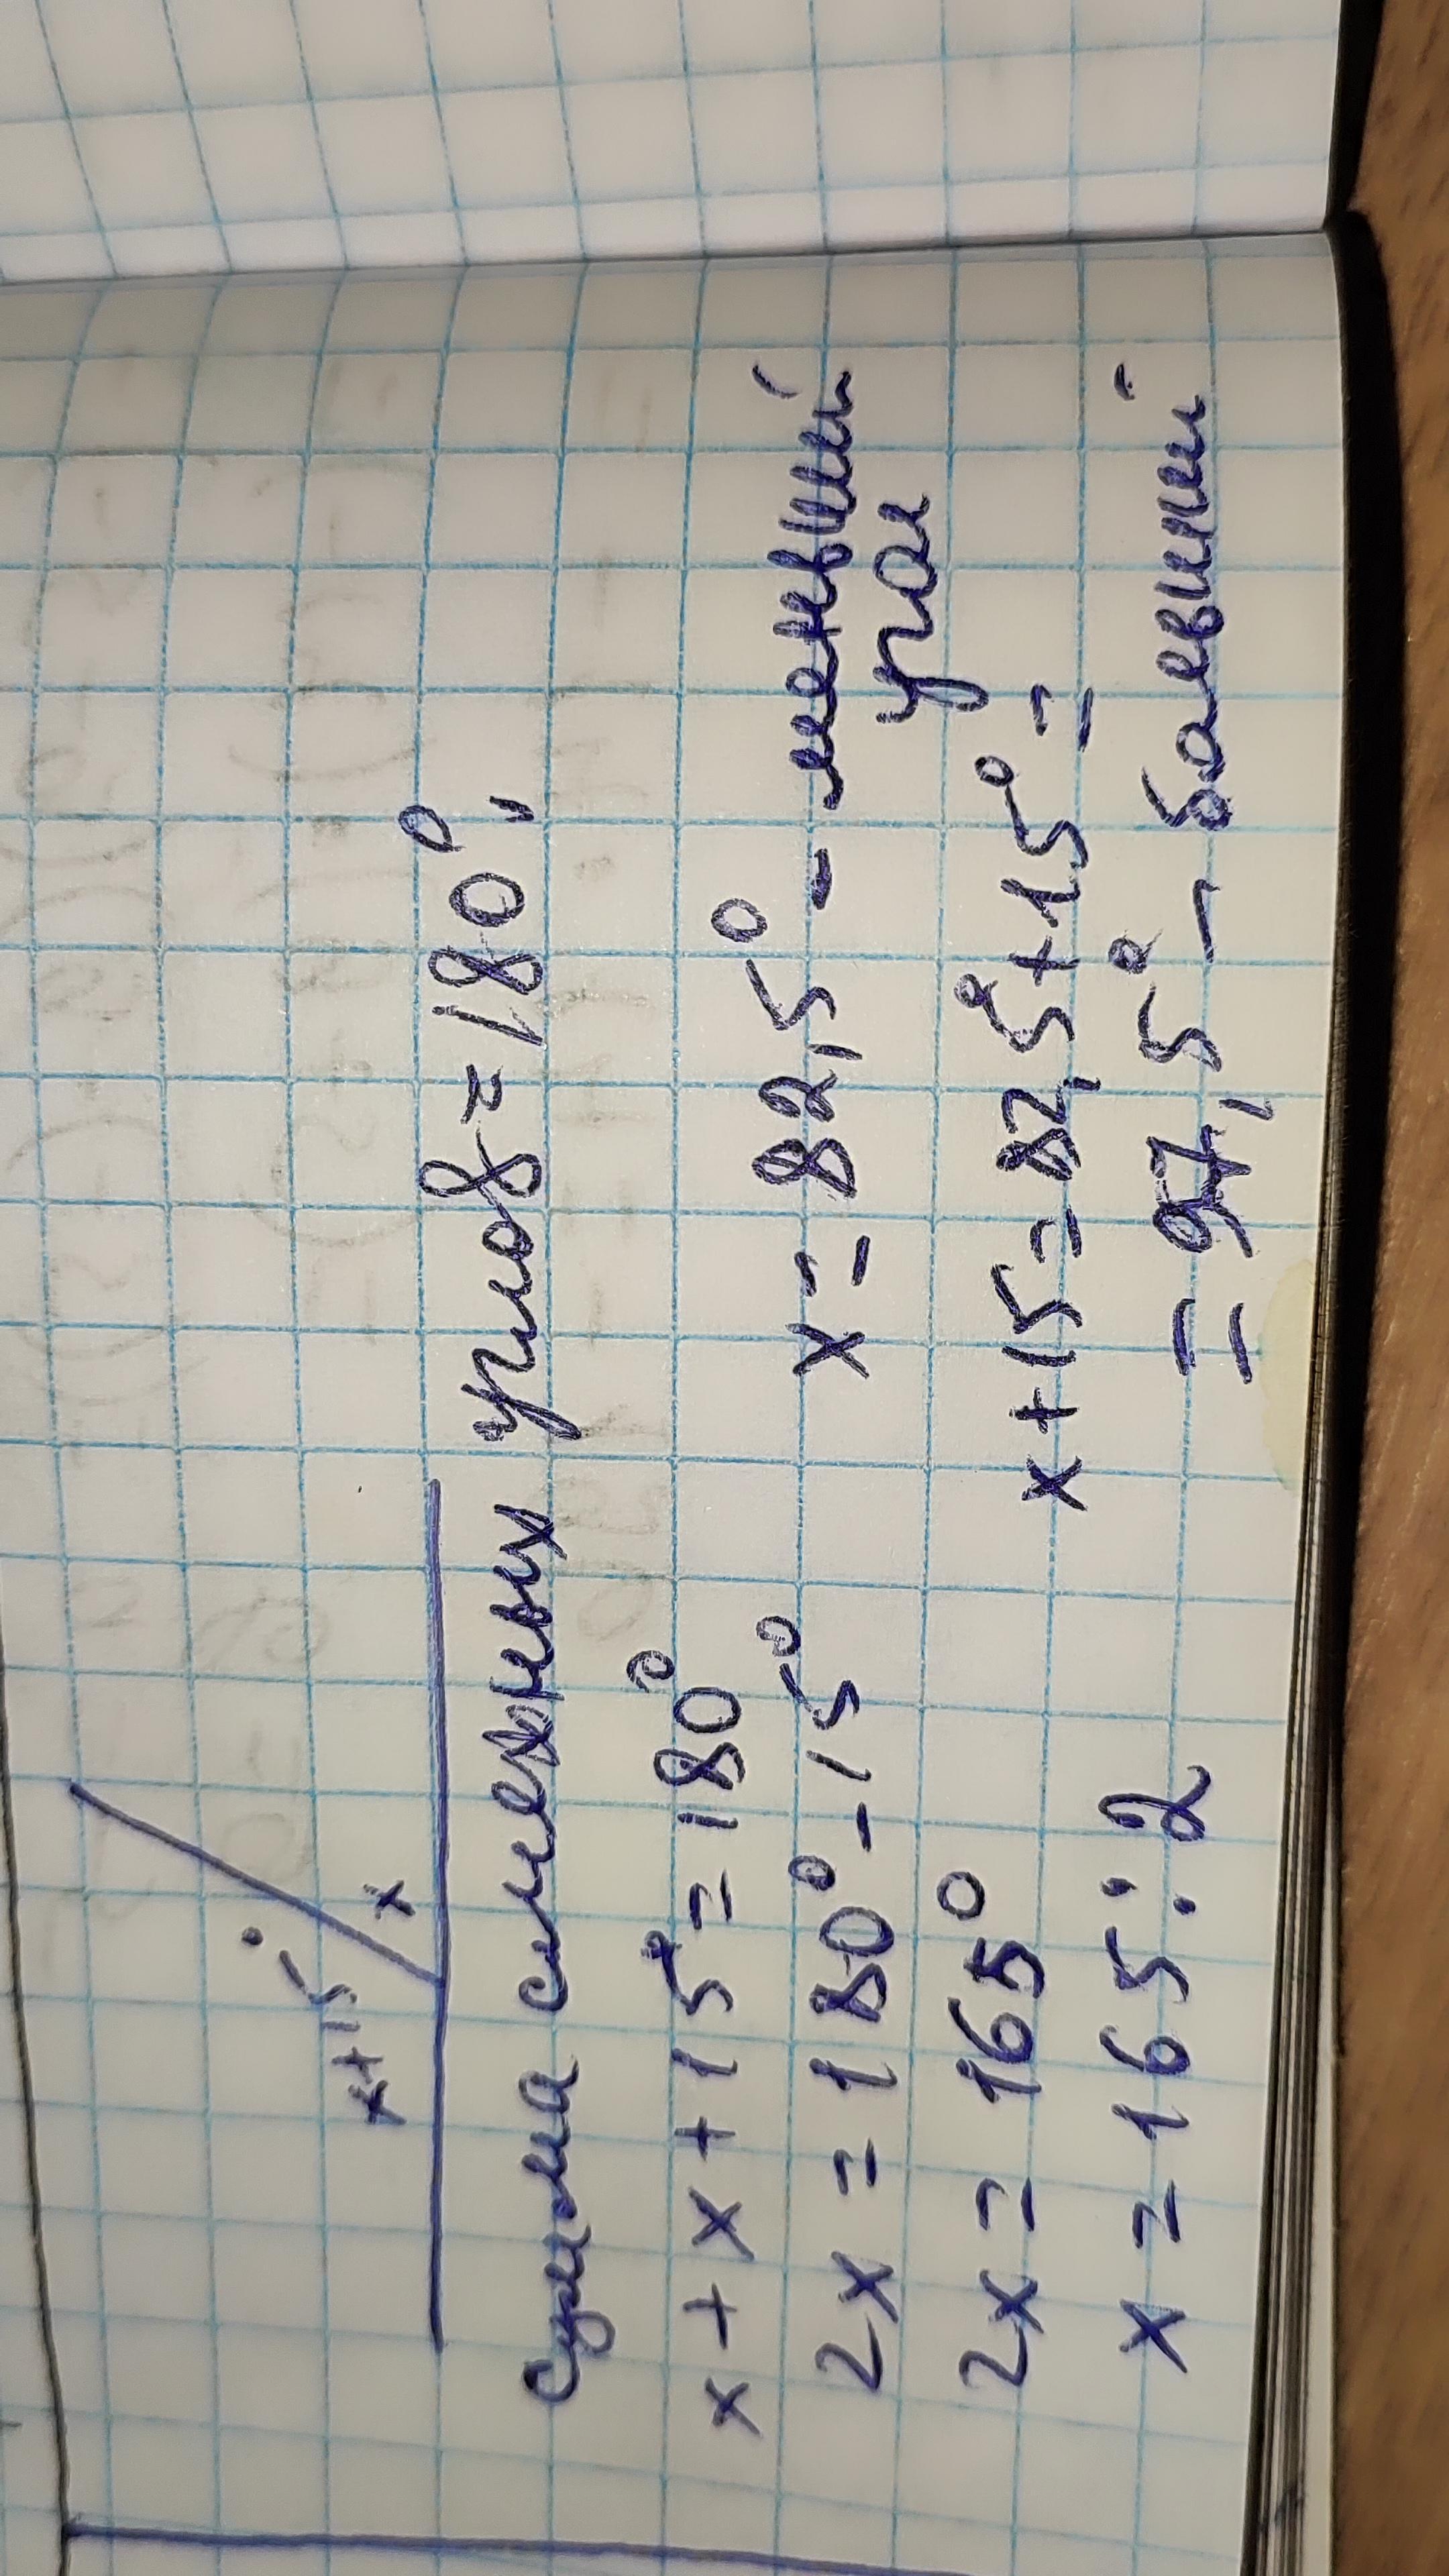 x+15°
x
сумма смежных углов = 180°,
x + x + 15° = 180°
2x = 180° - 15°
2x = 165°
x = 165 : 2
x = 82,5° - меньший
угол
x + 15 = 82,5° + 15° =
= 97,5° - больший